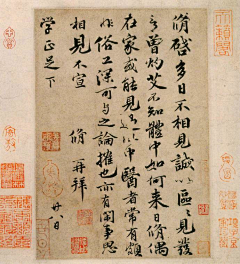 脩啓多日不相見誠以區〻見發
言曾灼艾不知體中如何來日脩偶
在家或能見過此中醫者常有頗
非俗工深可與之論搉也亦有閒事思
相見不宣 脩再拜 廿八日
學正足下